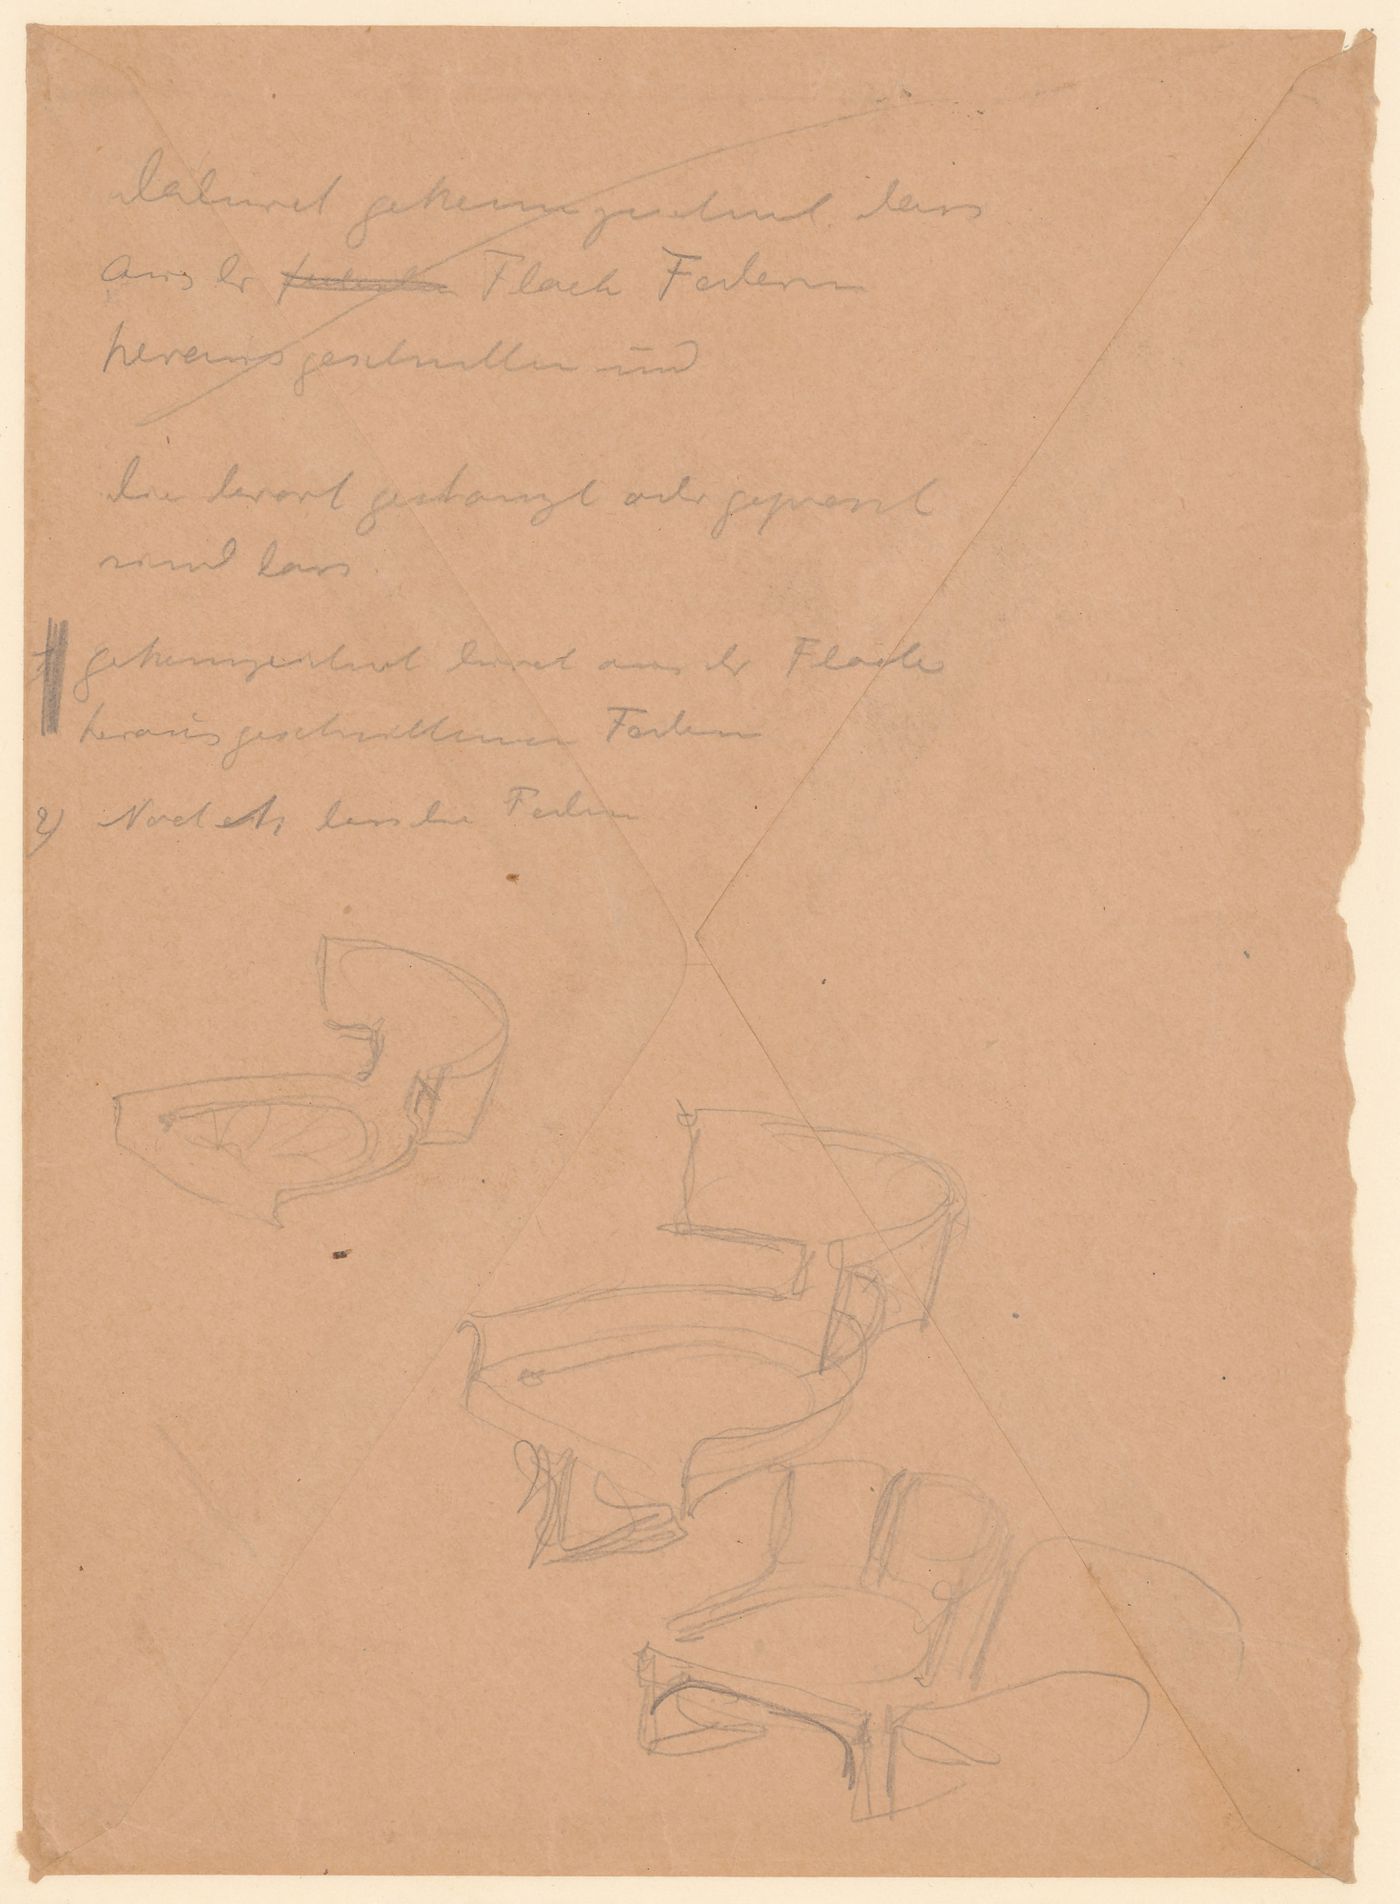 dadurch gekennzeichnet dass
aus der Fläche Federn
herausgeschnitten und
die derart gestanzt oder gepresst
sind dass
gekennzeichnet durch aus der Fläche
herausgeschnittenen Federn
2) dass die Federn